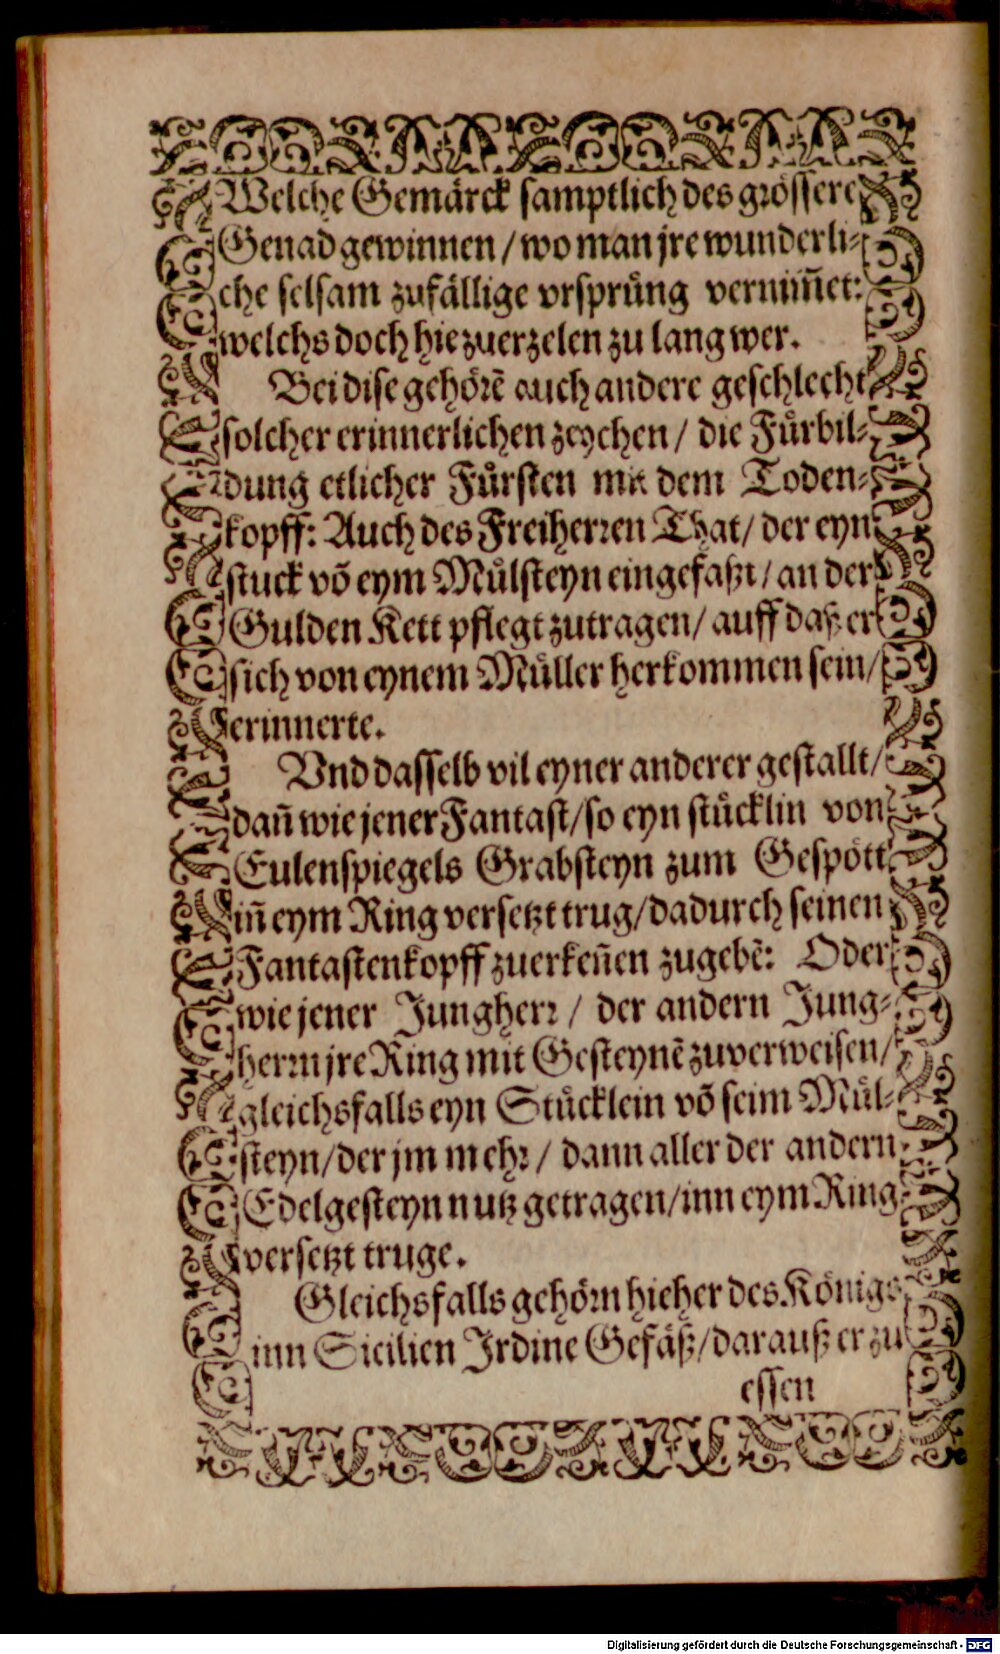 Welche Gemärck samptlich des grössere
Genad gewinnen / wo man jre wunderli⸗
che selsam zufällige vrsprüng vernim̃et:
welchs doch hie zuerzelen zu lang wer.
Bei dise gehörẽ auch andere geschlecht
solcher erinnerlichen zeychen / die Fürbil⸗
dung etlicher Fürsten mit dem Toden⸗
kopff: Auch des Freiherren That / der eyn
stuck võ eym Mülsteyn eingefaßt / an der
Gulden Kett pflegt zutragen / auff daß er
sich von eynem Müller herkommen sein /
erinnerte.
Vnd dasselb vil eyner anderer gestallt /
dañ wie jener Fantast / so eyn stücklin von
Eulenspiegels Grabsteyn zum Gespött
iñ eym Ring versetzt trug / dadurch seinen
Fantastenkopff zuerkeñen zugebẽ: Oder
wie jener Jungherr / der andern Jung⸗
herrn jre Ring mit Gesteynẽ zuverweisen /
gleichsfalls eyn Stücklein võ seim Mül⸗
steyn / der jm mehr / dann aller der andern
Edelgesteyn nutz getragen / inn eym Ring
versetzt truge.
Gleichsfalls gehörn hieher des Königs
inn Sicilien Irdine Gefäß / darauß er zu
essen
Digitalisierung gefördert durch die Deutsche Forschungsgemeinschaft - DFG